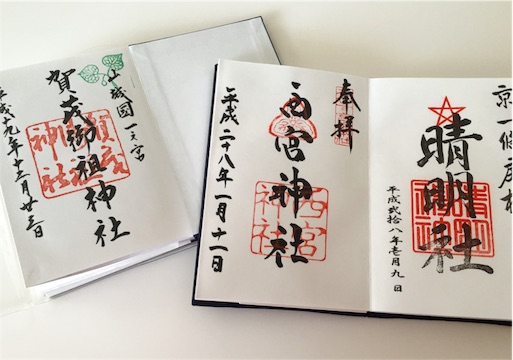 山城國一之宮
賀茂御祖神社
平成十九年十二月廿三日
奉拝
西宮神社
西宮
神社
平成二十八年一月十一日
京一條戻橋
晴明社
晴明
神社
平成弐拾八年壱月九日